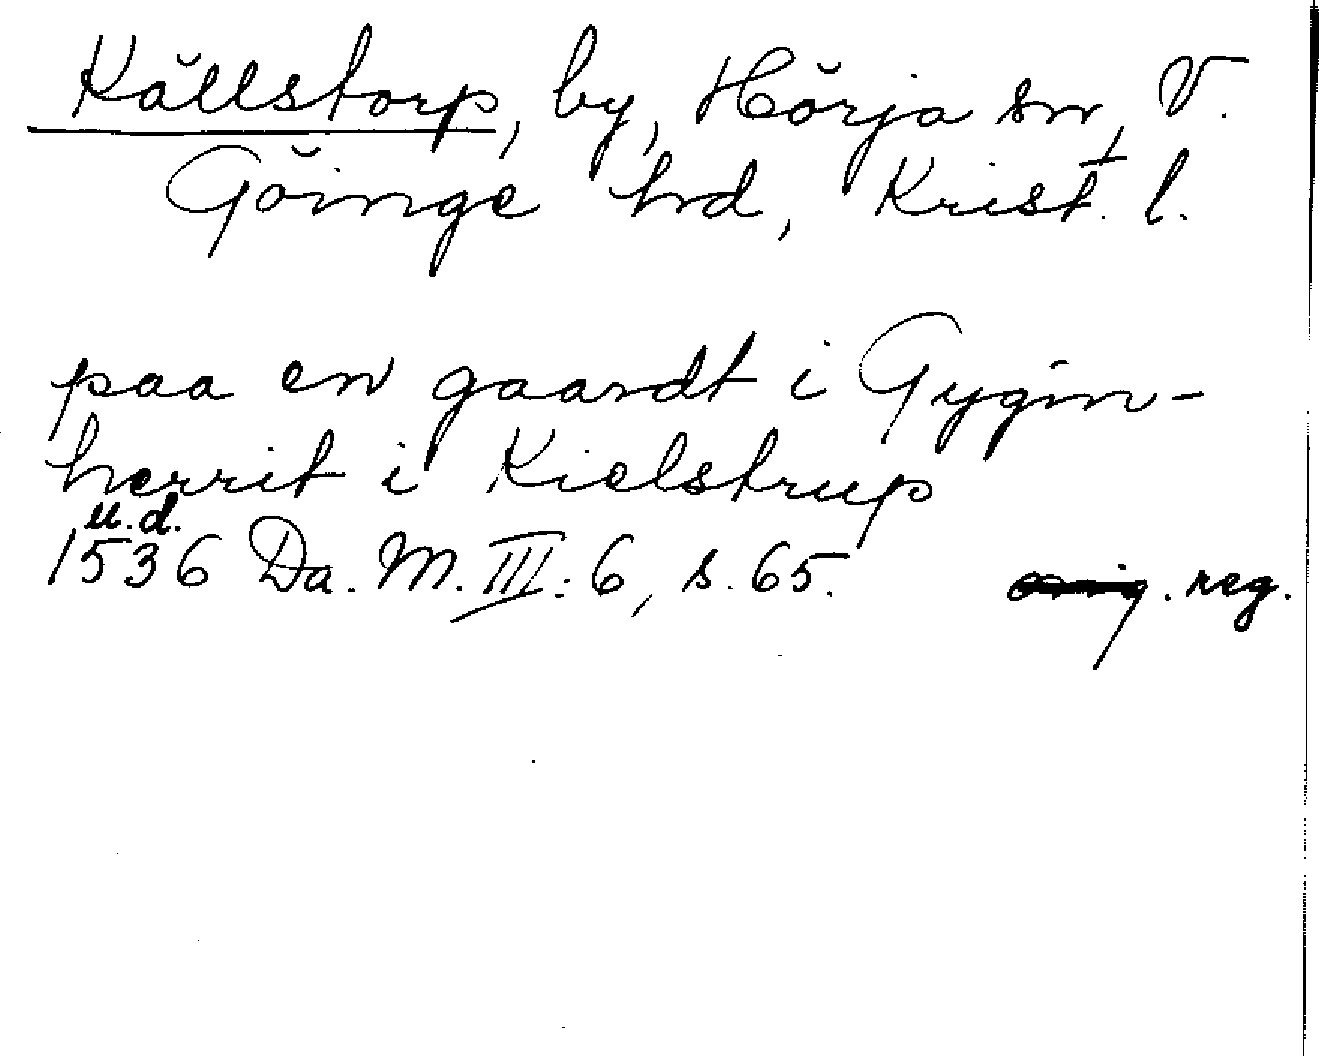 Källstorp, by, Hörja sn, V.
Göinge hd, Krist. l.
paa en gaardt i Gygin-
herrit i Kielstrup
u.d.
1536 Da. M. III: 6, s. 65. reg.